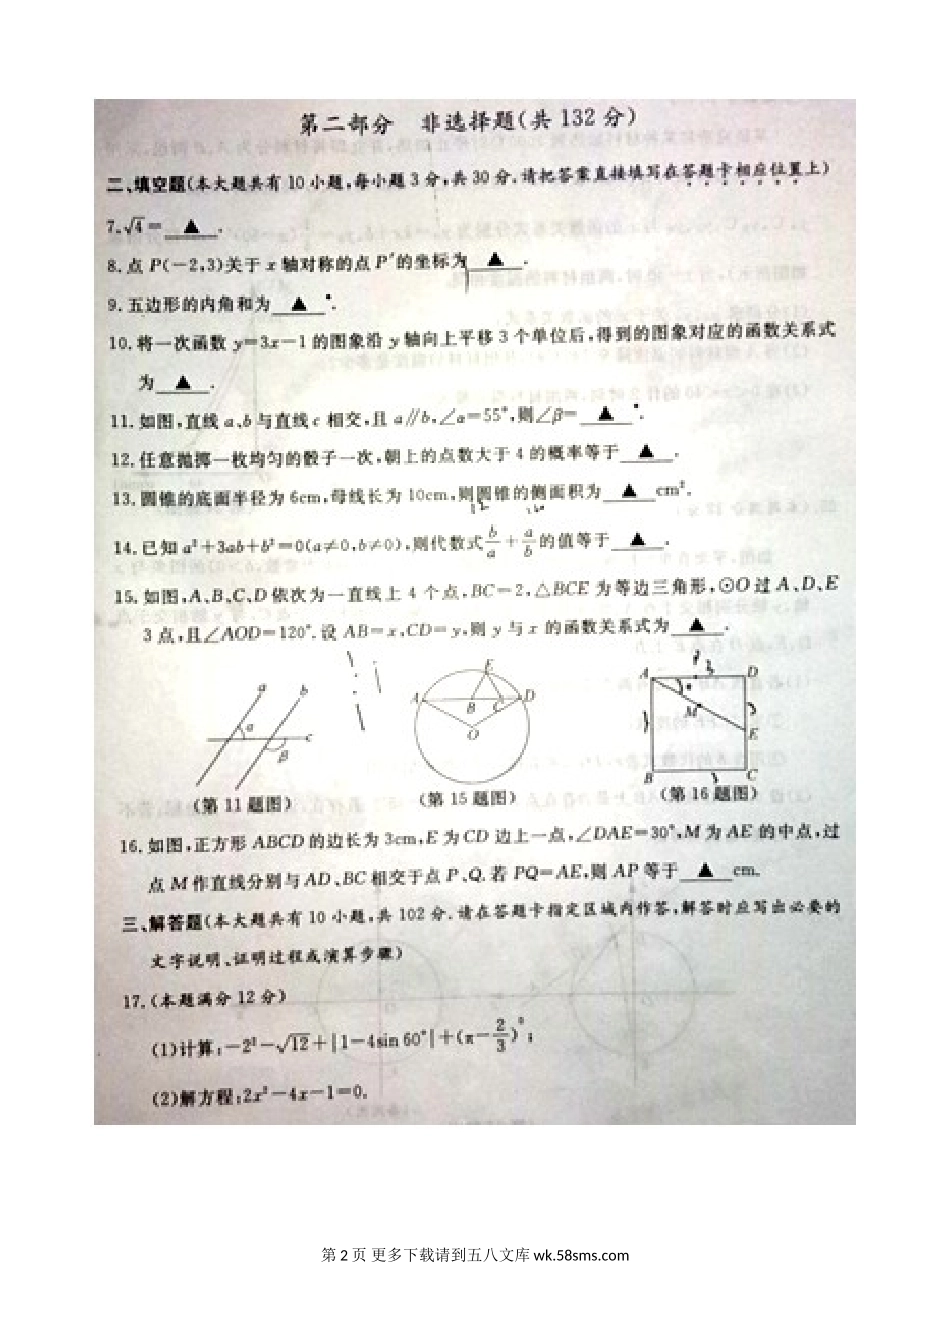 第二部分 非选择题(共 132 分)
二、填空题(本大题共有 10 小题,每小题 3 分,共 30 分.请把答案直接填写在答题卡相应位置上)
7.√4= ▲ .
8.点 P(-2,3)关于 x 轴对称的点 P′的坐标为 ▲ .
9.五边形的内角和为 ▲ .
10.将一次函数 y=3x-1 的图象沿 y 轴向上平移 3 个单位后,得到的图象对应的函数关系式
为 ▲ .
11.如图,直线 a、b 与直线 c 相交,且 a∥b,∠α=55°,则∠β= ▲ .
12.任意抛掷一枚均匀的骰子一次,朝上的点数大于 4 的概率等于 ▲ .
13.圆锥的底面半径为 6cm,母线长为 10cm,则圆锥的侧面积为 ▲ cm².
14.已知 a²+3ab+b²=0(a≠0,b≠0),则代数式 b/a + a/b 的值等于 ▲ .
15.如图,A、B、C、D 依次为一直线上 4 个点,BC=2,△BCE 为等边三角形,⊙O 过 A、D、E
3 点,且∠AOD=120°.设 AB=x,CD=y,则 y 与 x 的函数关系式为 ▲ .
a b α c β
E A B C D O
A D M E B C
(第 11 题图) (第 15 题图) (第 16 题图)
16.如图,正方形 ABCD 的边长为 3cm,E 为 CD 边上一点,∠DAE=30°,M 为 AE 的中点,过
点 M 作直线分别与 AD、BC 相交于点 P、Q.若 PQ=AE,则 AP 等于 ▲ cm.
三、解答题(本大题共有 10 小题,共 102 分.请在答题卡指定区域内作答,解答时应写出必要的
文字说明、证明过程或演算步骤)
17.(本题满分 12 分)
(1)计算:-2²-√12+|1-4sin 60°|+(π-2/3)⁰;
(2)解方程:2x²-4x-1=0.
第 2 页 更多下载请到五八文库 wk.58sms.com